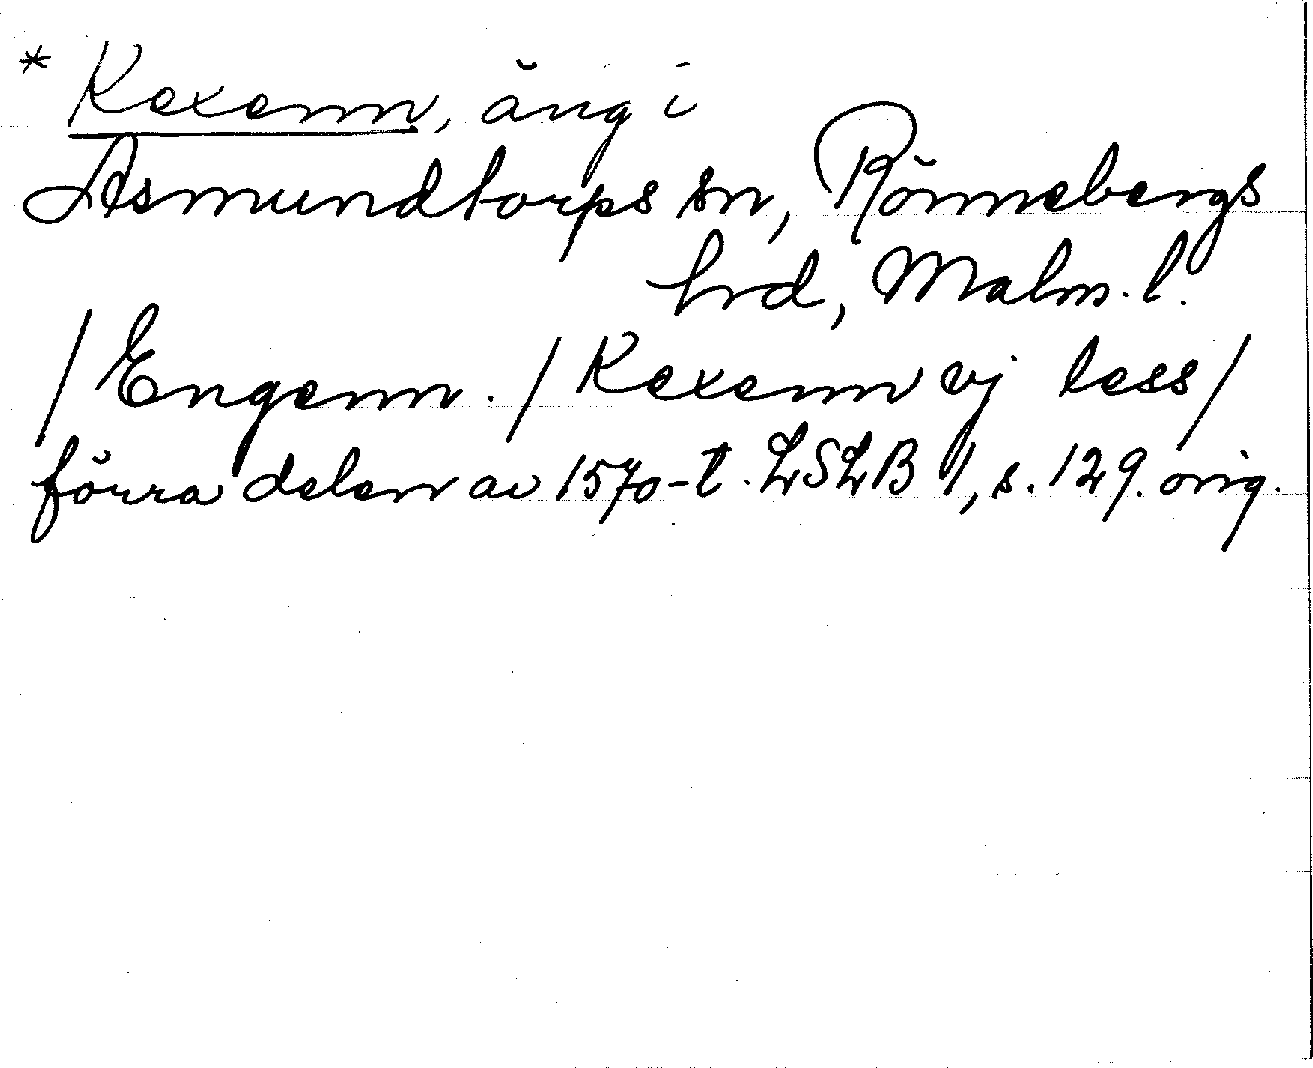 * Kexenn, äng i
Asmundtorps sn, Rönnebergs
hrd, Malm. l.
/Engenn./Kexenn vj less/
förra delen av 1570-t. LSLB 1, s. 129. orig.